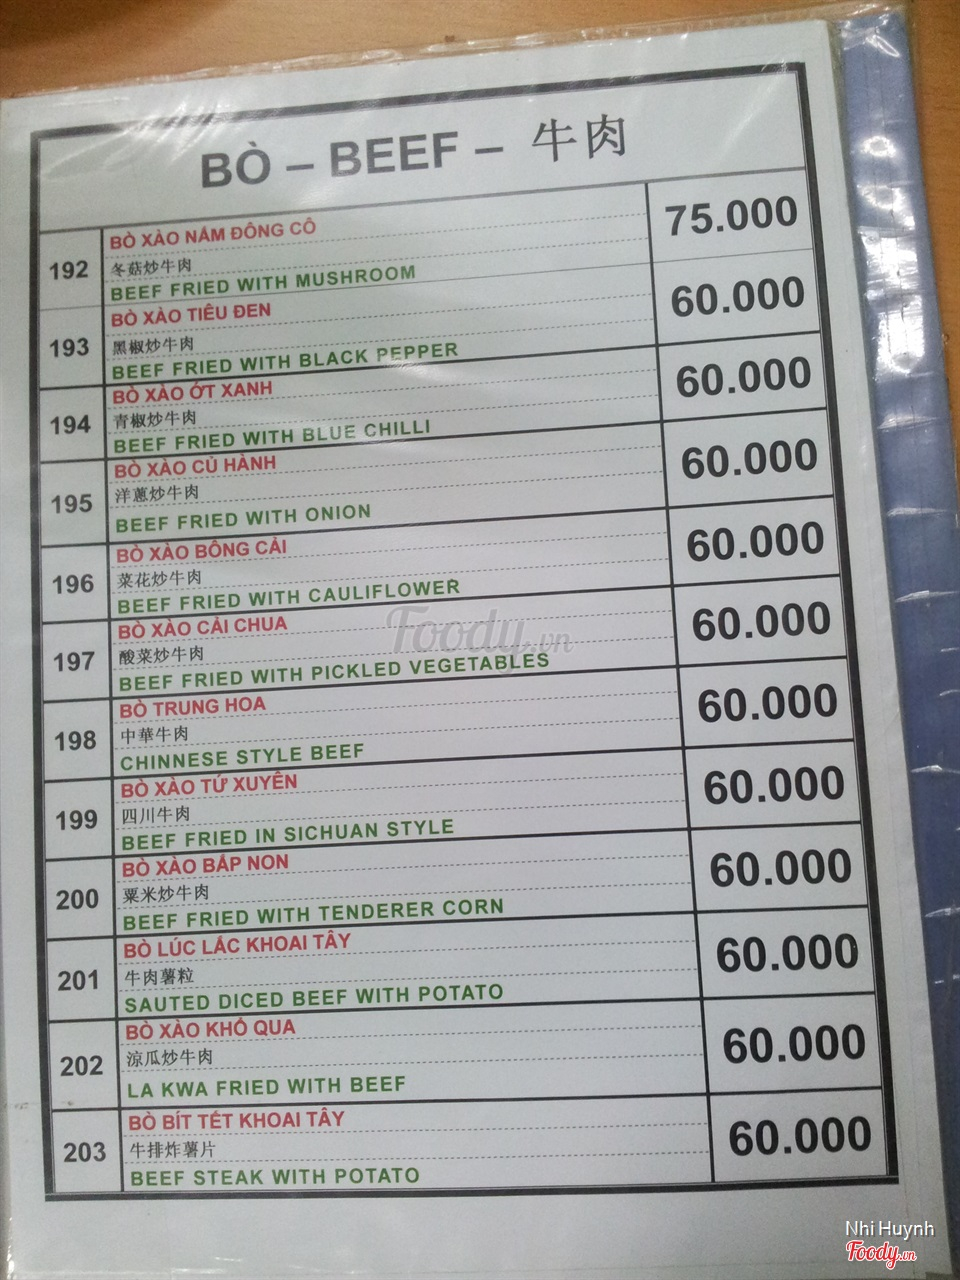 BÒ – BEEF – 牛肉
192
BÒ XÀO NẤM ĐÔNG CÔ
冬菇炒牛肉
BEEF FRIED WITH MUSHROOM
75.000
193
BÒ XÀO TIÊU ĐEN
黑椒炒牛肉
BEEF FRIED WITH BLACK PEPPER
60.000
194
BÒ XÀO ỚT XANH
青椒炒牛肉
BEEF FRIED WITH BLUE CHILLI
60.000
195
BÒ XÀO CỦ HÀNH
洋蔥炒牛肉
BEEF FRIED WITH ONION
60.000
196
BÒ XÀO BÔNG CẢI
菜花炒牛肉
BEEF FRIED WITH CAULIFLOWER
60.000
197
BÒ XÀO CẢI CHUA
酸菜炒牛肉
BEEF FRIED WITH PICKLED VEGETABLES
60.000
198
BÒ TRUNG HOA
中華牛肉
CHINNESE STYLE BEEF
60.000
199
BÒ XÀO TỨ XUYÊN
四川牛肉
BEEF FRIED IN SICHUAN STYLE
60.000
200
BÒ XÀO BẮP NON
粟米炒牛肉
BEEF FRIED WITH TENDERER CORN
60.000
201
BÒ LÚC LẮC KHOAI TÂY
牛肉薯粒
SAUTED DICED BEEF WITH POTATO
60.000
202
BÒ XÀO KHỔ QUA
涼瓜炒牛肉
LA KWA FRIED WITH BEEF
60.000
203
BÒ BÍT TẾT KHOAI TÂY
牛排炸薯片
BEEF STEAK WITH POTATO
60.000
Foody.vn
Nhi Huynh
Foody.vn